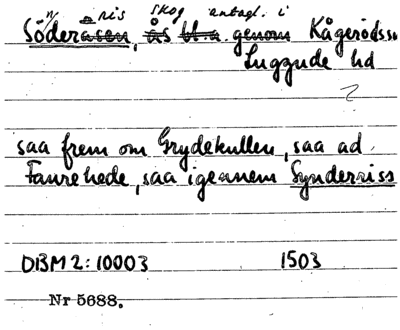 n ris skog antagl. i
Söderåsen, ås bl.a. genom Kågerödss
Luggude hd
2
saa frem om Grydekullen, saa ad
Faurehede, saa igennem Synderriss
DBM 2: 10003 1503
Nr 5688.